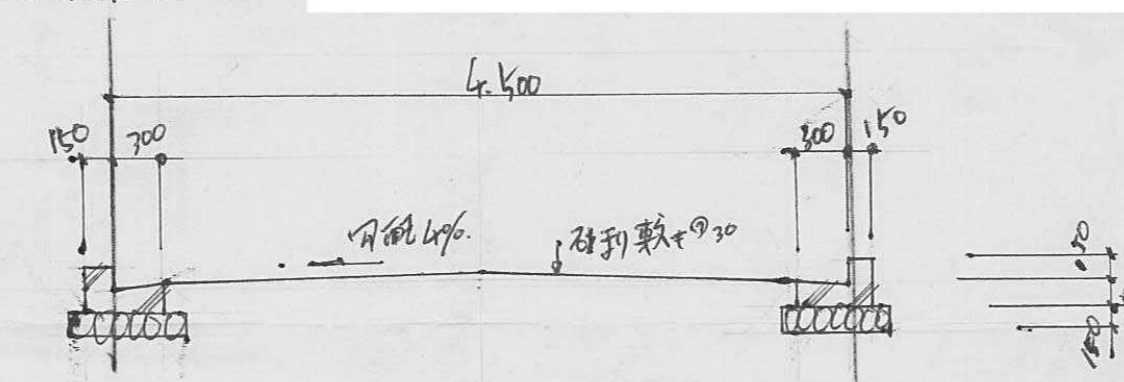 4.500
150
300
300
150
勾配4%
砂利敷キ⑦30
50
150